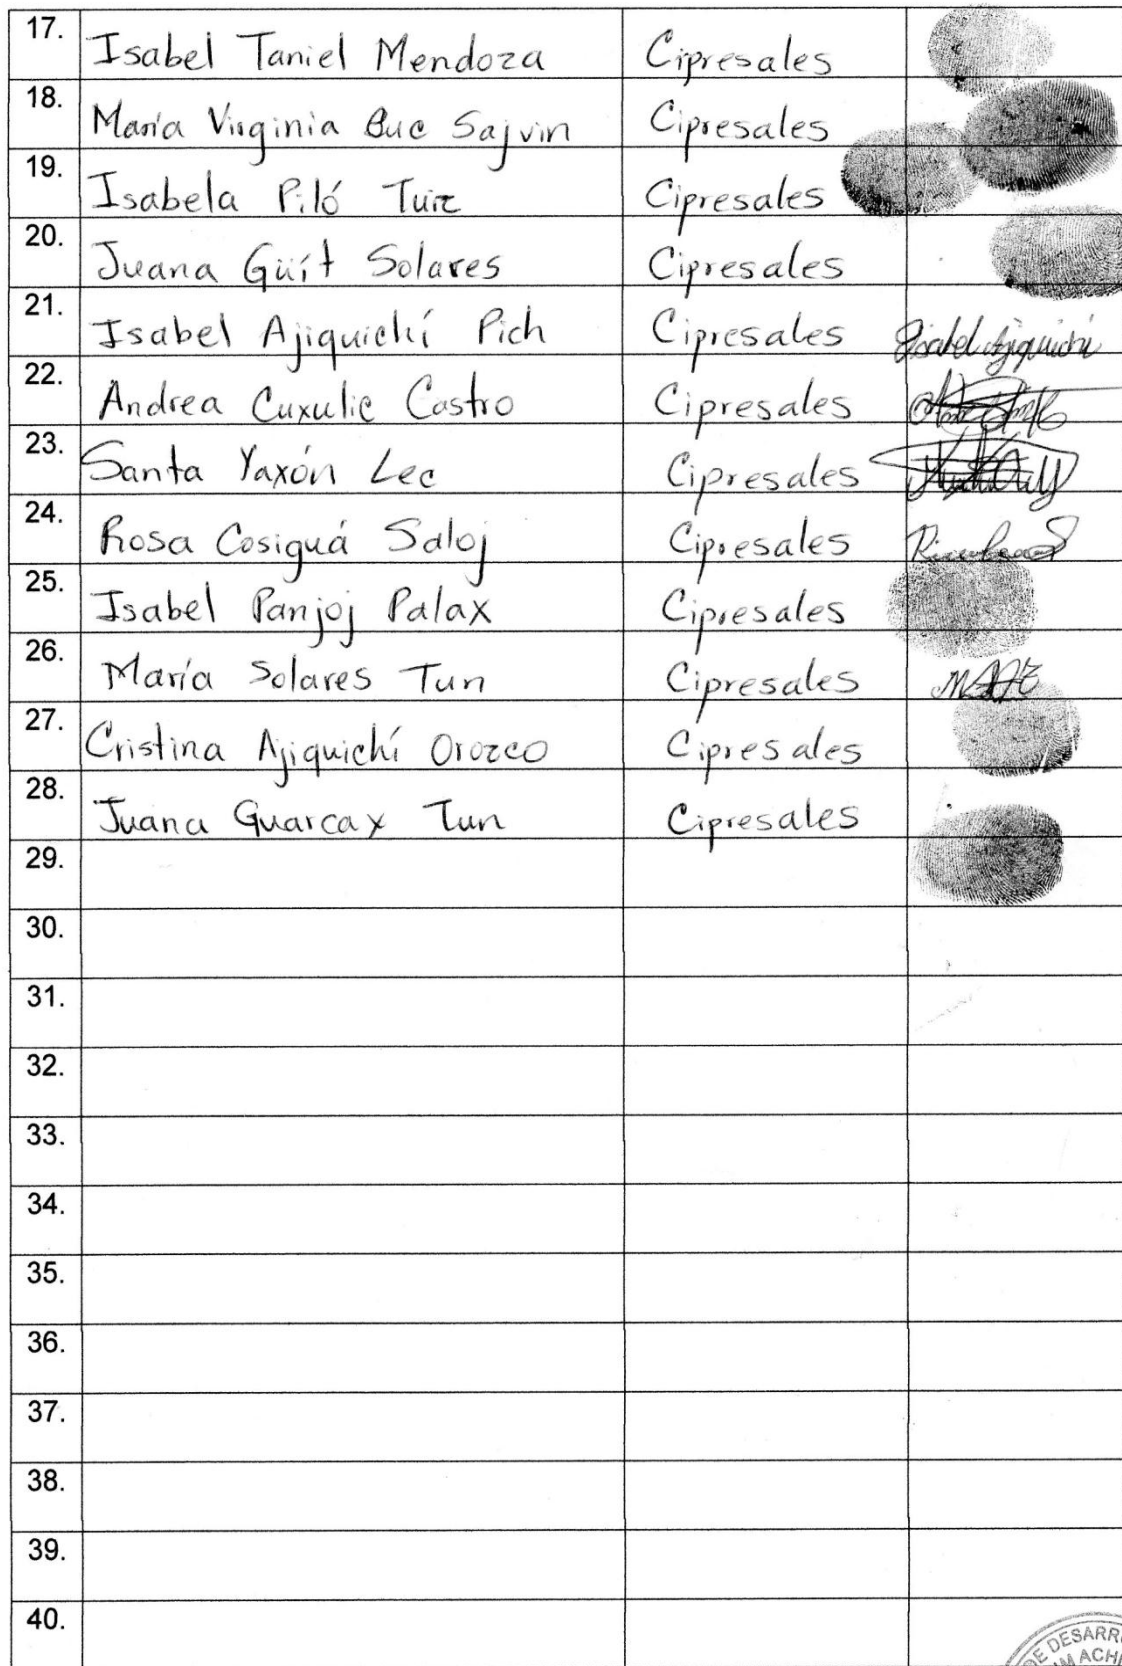 17. Isabel Taniel Mendoza Cipresales
18. María Virginia Buc Sajvin Cipresales
19. Isabela Piló Tuiz Cipresales
20. Juana Güít Solares Cipresales
21. Isabel Ajiquichí Pich Cipresales Isabel Ajiquichi
22. Andrea Cuxulic Castro Cipresales
23. Santa Yaxón Lec Cipresales
24. Rosa Cosiguá Saloj Cipresales
25. Isabel Panjoj Palax Cipresales
26. María Solares Tun Cipresales
27. Cristina Ajiquichí Orozco Cipresales
28. Juana Guarcax Tun Cipresales
29.
30.
31.
32.
33.
34.
35.
36.
37.
38.
39.
40.
DE DESARR